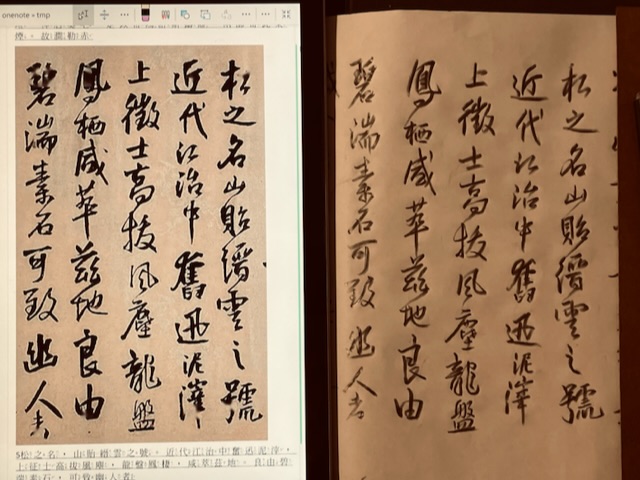 onenote » tmp
煙，故讚勒赤
松之名山貽縉雲之號
近代江治中奮迅泥滓
上徵士高拔風塵龍盤
鳳栖咸萃茲地良由
碧湍素石可致幽人者
5松之名，山貽縉雲之號。近代江治中奮迅泥滓，
上征士高拔風塵，龍盤鳳棲，咸萃茲地。良由碧
湍素石，可致幽人者
松之名山貽縉雲之號
近代江治中奮迅泥滓
上徵士高拔風塵龍盤
鳳栖咸萃茲地良由
碧湍素石可致幽人者